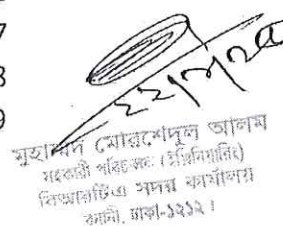 7
8
9
মুহাম্মদ মোরশেদুল আলম
সহকারী পরিচালক (ইঞ্জিনিয়ারিং)
বিআরটিএ সদর কার্যালয়
বনানী, ঢাকা-১২১২।